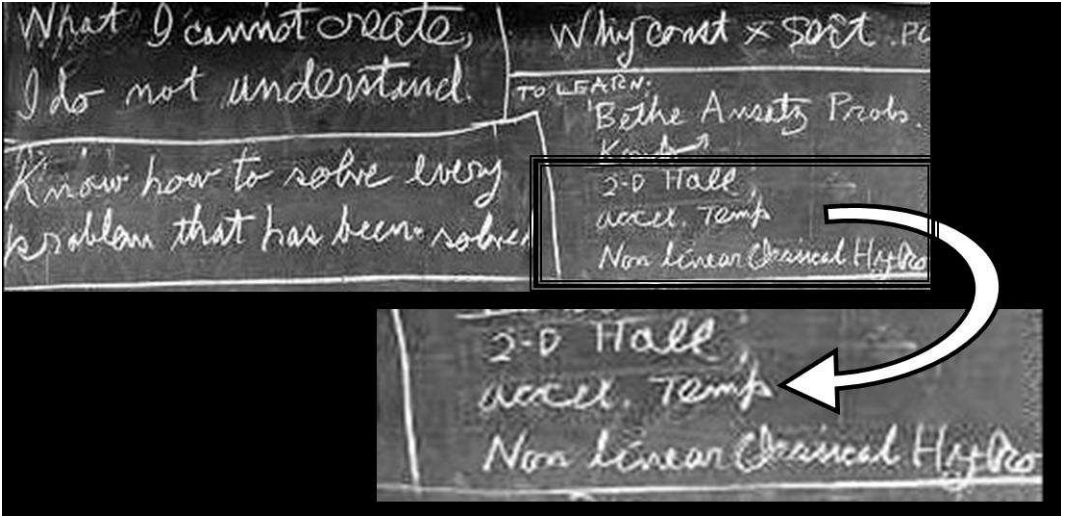 What I cannot create,
I do not understand.
Know how to solve every
problem that has been solved
Why const × sort . PO
TO LEARN:
Bethe Ansatz Probs.
Kondo
2-D Hall
accel. Temp
Non linear Classical Hydro
2-D Hall,
accel. Temp
Non linear Classical Hydro